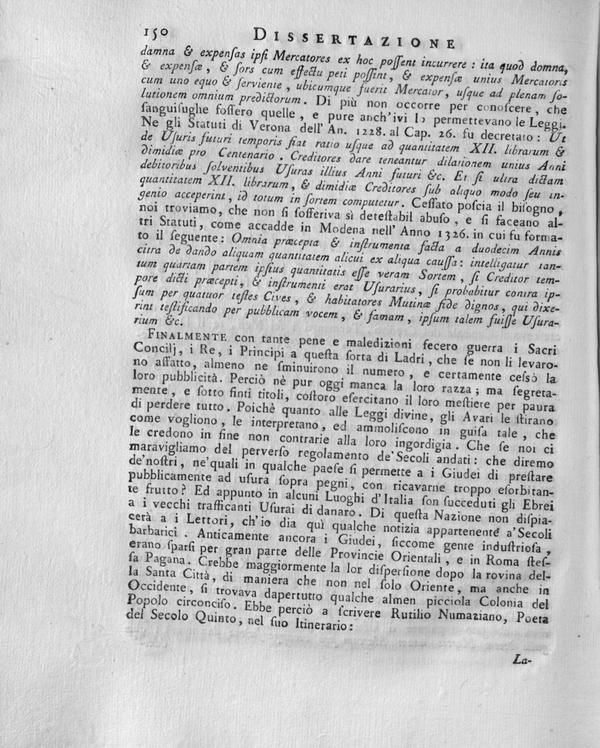 150 DISSERTAZIONE
damna & expensas ipsi Mercatores ex hoc possent incurrere : ita quod domna,
& expensæ, & sors cum effectu peti possint, & expensæ unius Mercatoris
cum uno equo & serviente, ubicumque fuerit Mercator, usque ad plenam so-
lutionem omnium predictorum. Di più non occorre per conoscere, che
sanguisughe fossero quelle, e pure anch'ivi lo permettevano le Leggi.
Ne gli Statuti di Verona dell'An. 1228. al Cap. 26. fu decretato: Ut
de Usuris futuri temporis fiat ratio usque ad quantitatem XII. librarum &
dimidiæ pro Centenario. Creditores dare teneantur dilationem unius Anni
debitoribus solventibus Usuras illius Anni futuri &c. Et si ultra dictam
quantitatem XII. librarum, & dimidiæ Creditores sub aliquo modo seu in-
genio acceperint, id totum in sortem computetur. Cessato poscia il bisogno,
noi troviamo, che non si sofferiva sì detestabil abuso, e si faceano al-
tri Statuti, come accadde in Modena nell'Anno 1326. in cui fu forma-
to il seguente: Omnia præcepta & instrumenta facta a duodecim Annis
citra de dando aliquam quantitatem alicui ex aliqua caussa: intelligatur tan-
tum quartam partem ipsius quantitatis esse veram Sortem, si Creditor tem-
pore dicti præcepti, & instrumenti erat Usurarius, si probabitur contra ip-
sum per quatuor testes Cives, & habitatores Mutinæ fide dignos, qui dixe-
rint testificando per pubblicam vocem, & famam, ipsum talem fuisse Usura-
rium &c.
FINALMENTE con tante pene e maledizioni fecero guerra i Sacri
Concilj, i Re, i Principi a questa sorta di Ladri, che se non li levaro-
no affatto, almeno ne sminuirono il numero, e certamente cessò la
loro pubblicità. Perciò nè pur oggi manca la loro razza; ma segreta-
mente, e sotto finti titoli, costoro esercitano il loro mestiere per paura
di perdere tutto. Poichè quanto alle Leggi divine, gli Avari le stirano
come vogliono, le interpretano, ed ammolliscono in guisa tale, che
le credono in fine non contrarie alla loro ingordigia. Che se noi ci
maravigliamo del perverso regolamento de'Secoli andati: che diremo
de'nostri, ne'quali in qualche paese si permette a i Giudei di prestare
pubblicamente ad usura sopra pegni, con ricavarne troppo esorbitan-
te frutto? Ed appunto in alcuni Luoghi d'Italia son succeduti gli Ebrei
a i vecchi trafficanti Usurai di danaro. Di questa Nazione non dispia-
cerà a i Lettori, ch'io dia quì qualche notizia appartenente a'Secoli
barbarici. Anticamente ancora i Giudei, siccome gente industriosa,
erano sparsi per gran parte delle Provincie Orientali, e in Roma stes-
sa Pagana. Crebbe maggiormente la lor dispersione dopo la rovina del-
la Santa Città, di maniera che non nel solo Oriente, ma anche in
Occidente, si trovava dapertutto qualche almen picciola Colonia del
Popolo circonciso. Ebbe perciò a scrivere Rutilio Numaziano, Poeta
del Secolo Quinto, nel suo Itinerario:
La-